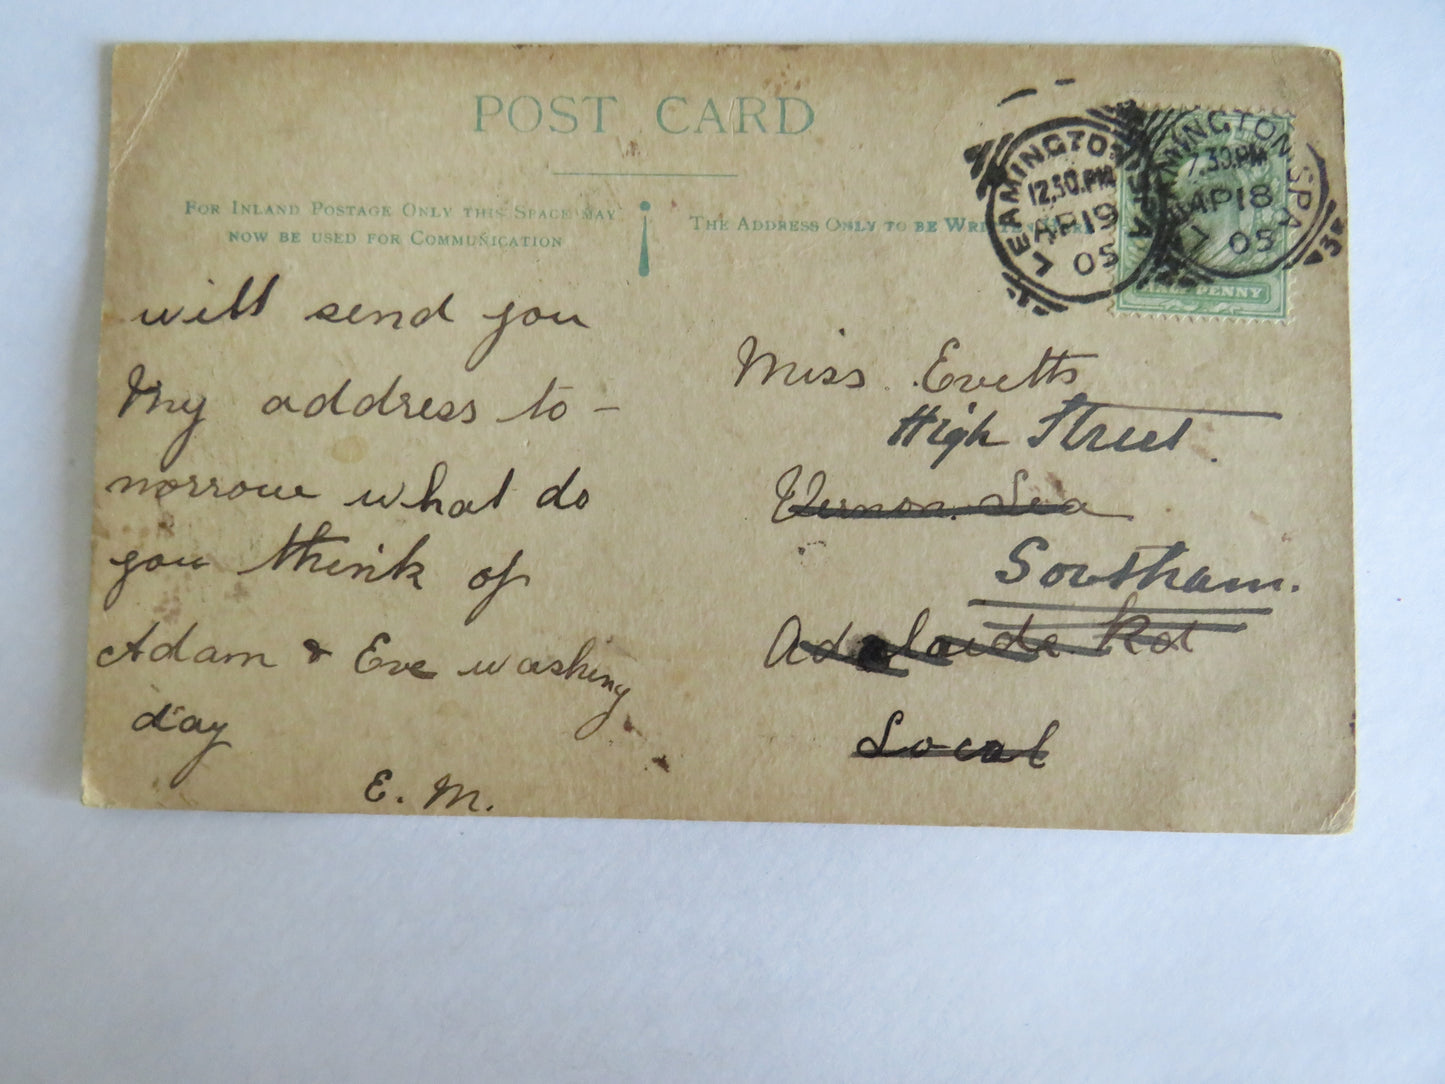 POST CARD
FOR INLAND POSTAGE ONLY THIS SPACE MAY
NOW BE USED FOR COMMUNICATION
THE ADDRESS ONLY TO BE WRITTEN
LEAMINGTON SPA
12.30.PM
AP19
05
LEAMINGTON SPA
7.30.PM
AP18
05
HALF PENNY
will send you
My address to-
morrow what do
you think of
Adam & Eve washing
day
E. M.
Miss Evetts
High Street
Vernon Lea
Southam.
Adelaide Rd
Local